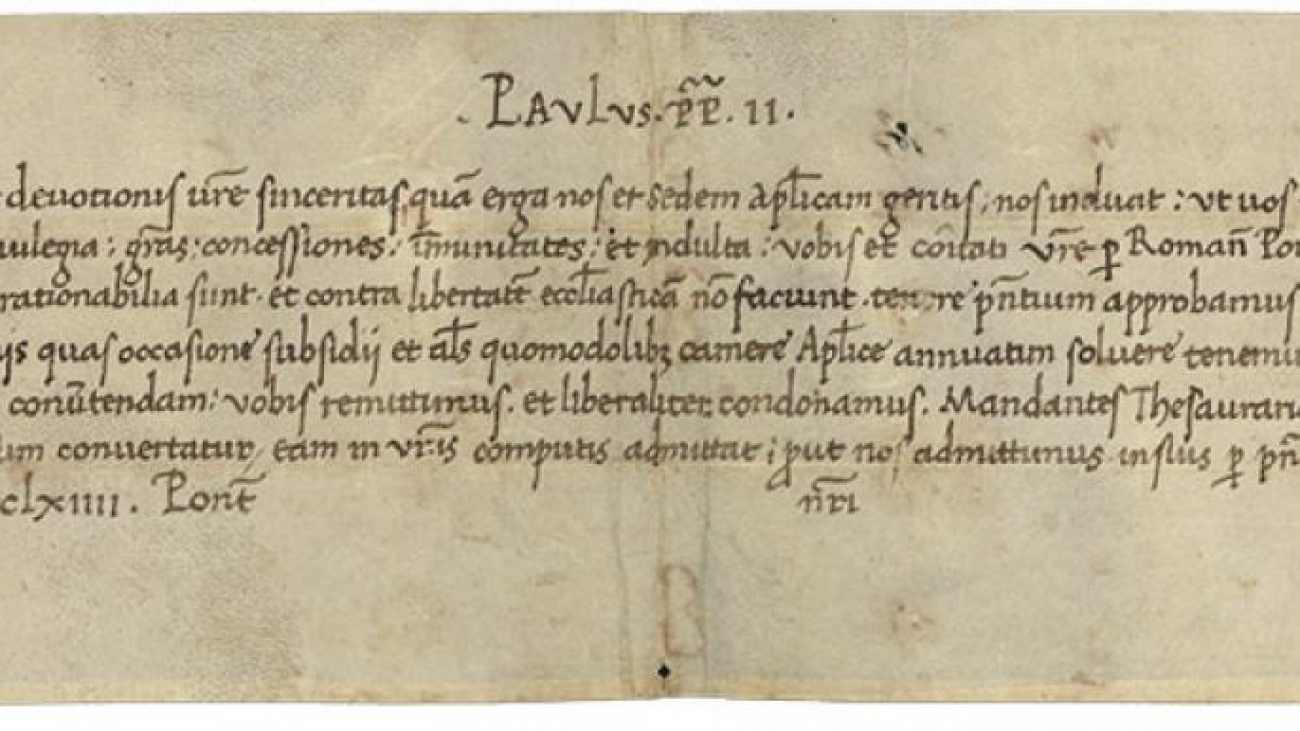 . PAVLVS . PP̃ . II .
devotionis vr̃e sinceritas, quã erga nos et sedem Aplicam geritis, nos induat : ut vos
vilegia : gr̃as : concessiones : ĩmunitates : et indulta : vobis et cõitati vr̃e ꝑ Romañ Pon
rationabilia sunt . et contra libertatẽ eccl̃iasticã nõ faciunt . tenore p̃ntium approbamus
ijs quas occasione subsidij et al̃s quomodolibꝫ camere Aplice annuatim soluere tenemi
conũtendam : vobis remittimus . et liberaliter condonamus . Mandantes Thesaurari
um convertatur, eam in vr̃is computis admittat ; ꝓut nos admittimus ꝑ p̃n
clxiiii . Pont̃ nr̃i